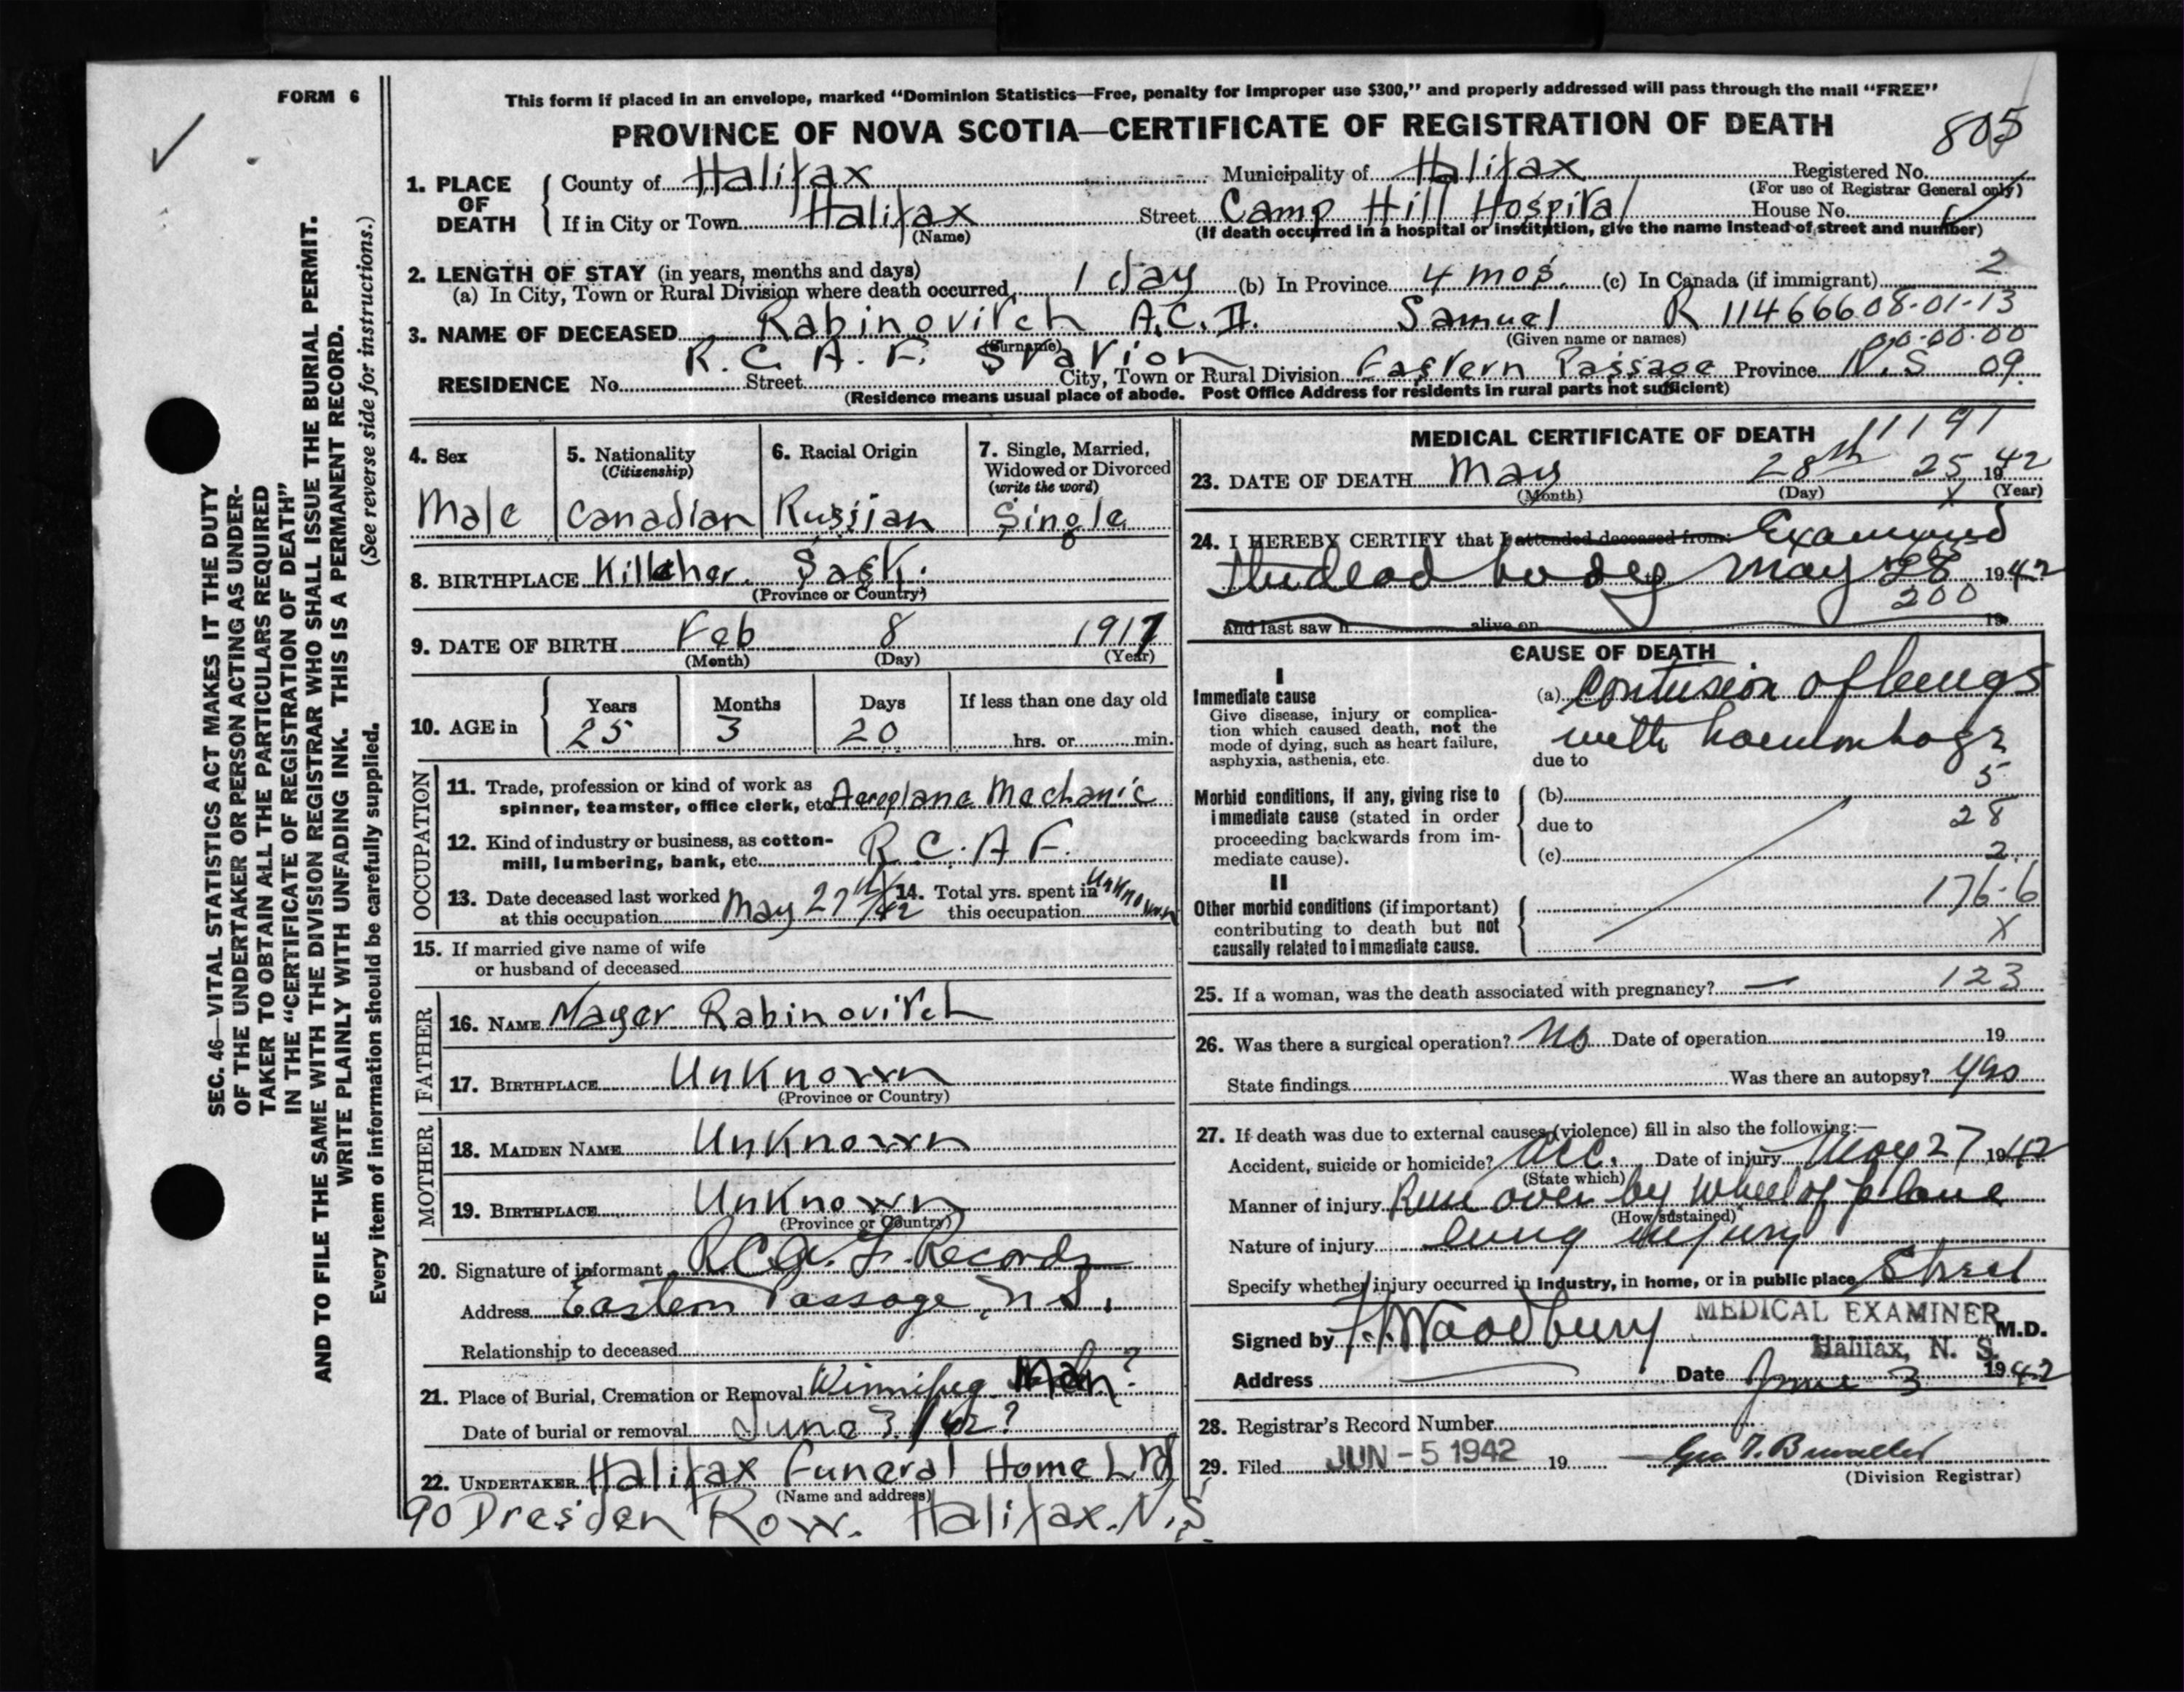 FORM 6
This form if placed in an envelope, marked "Dominion Statistics—Free, penalty for improper use $300," and properly addressed will pass through the mail "FREE"
PROVINCE OF NOVA SCOTIA—CERTIFICATE OF REGISTRATION OF DEATH
805
1. PLACE OF DEATH
County of Halifax Municipality of Halifax Registered No.
(For use of Registrar General only)
If in City or Town Halifax Street Camp Hill Hospital House No.
(Name) (If death occurred in a hospital or institution, give the name instead of street and number)
2. LENGTH OF STAY (in years, months and days)
(a) In City, Town or Rural Division where death occurred 1 day (b) In Province 4 mos. (c) In Canada (if immigrant) 2
3. NAME OF DECEASED Rabinovitch A.C. II. Samuel R 114666 08-01-13
(Surname) (Given name or names) 00-00-00
R.C.A.F. Station
RESIDENCE No. Street City, Town or Rural Division Eastern Passage Province N.S 09
(Residence means usual place of abode. Post Office Address for residents in rural parts not sufficient)
4. Sex
Male
5. Nationality
(Citizenship)
Canadian
6. Racial Origin
Russian
7. Single, Married,
Widowed or Divorced
(write the word)
Single
8. BIRTHPLACE Sask.
(Province or Country)
9. DATE OF BIRTH Feb 8 1917
(Month) (Day) (Year)
10. AGE in
Years Months Days If less than one day old
25 3 20 hrs. or min.
OCCUPATION
11. Trade, profession or kind of work as
spinner, teamster, office clerk, etc. Aeroplane Mechanic
12. Kind of industry or business, as cotton-
mill, lumbering, bank, etc. R.C.A.F.
13. Date deceased last worked
at this occupation May 27th/42
14. Total yrs. spent in
this occupation Unknown
15. If married give name of wife
or husband of deceased
FATHER
16. NAME Mayer Rabinovitch
17. BIRTHPLACE Unknown
(Province or Country)
MOTHER
18. MAIDEN NAME Unknown
19. BIRTHPLACE Unknown
(Province or Country)
20. Signature of informant R.C.A.F. Records
Address Eastern Passage, N.S.
Relationship to deceased
21. Place of Burial, Cremation or Removal Winnipeg Man?
Date of burial or removal June 3/42?
22. UNDERTAKER Halifax Funeral Home Ltd
(Name and address)
90 Dresden Row. Halifax. N.S.
MEDICAL CERTIFICATE OF DEATH
1191
23. DATE OF DEATH May 28th 25 1942
(Month) (Day) (Year)
24. I HEREBY CERTIFY that I attended deceased from: Examined
the dead body May 28 1942
200
and last saw h alive on 19
CAUSE OF DEATH
I
Immediate cause
Give disease, injury or complica-
tion which caused death, not the
mode of dying, such as heart failure,
asphyxia, asthenia, etc.
(a) Contusion of lungs
with haemorrhage
due to
5
Morbid conditions, if any, giving rise to
immediate cause (stated in order
proceeding backwards from im-
mediate cause).
(b)
due to 28
(c) 2
II
Other morbid conditions (if important)
contributing to death but not
causally related to immediate cause.
176-6
X
25. If a woman, was the death associated with pregnancy? — 123
26. Was there a surgical operation? No Date of operation 19
State findings Was there an autopsy? Yes
27. If death was due to external causes (violence) fill in also the following:—
Accident, suicide or homicide? Acc. Date of injury May 27 1942
(State which)
Manner of injury Run over by wheel of plane
(How sustained)
Nature of injury lung injury
Specify whether injury occurred in industry, in home, or in public place Street
Signed by Woodbury MEDICAL EXAMINER M.D.
Halifax, N. S.
Address Date June 3 1942
28. Registrar's Record Number
29. Filed JUN - 5 1942 19
(Division Registrar)
SEC. 46—VITAL STATISTICS ACT MAKES IT THE DUTY
OF THE UNDERTAKER OR PERSON ACTING AS UNDER-
TAKER TO OBTAIN ALL THE PARTICULARS REQUIRED
IN THE "CERTIFICATE OF REGISTRATION OF DEATH"
AND TO FILE THE SAME WITH THE DIVISION REGISTRAR WHO SHALL ISSUE THE BURIAL PERMIT.
WRITE PLAINLY WITH UNFADING INK. THIS IS A PERMANENT RECORD.
Every item of information should be carefully supplied. (See reverse side for instructions.)